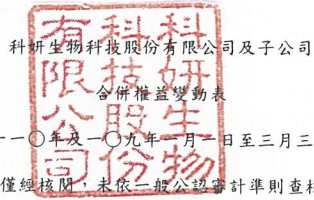 科妍生物科技股份有限公司及子公司
合併權益變動表
一一〇年及一〇九年一月一日至三月三
僅經核閱，未依一般公認審計準則查核
科妍生物
科技股份
有限公司